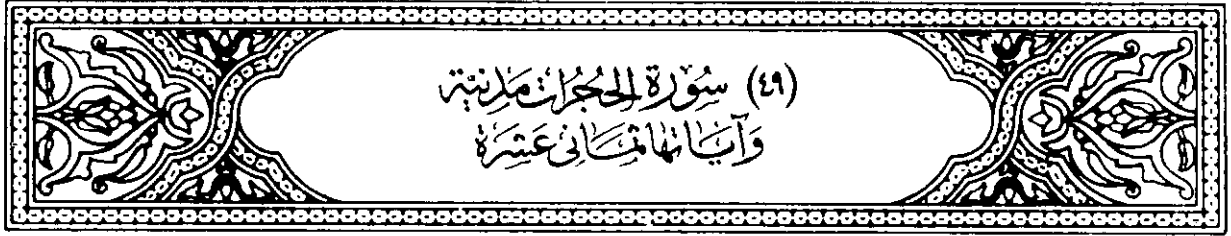 (٤٩) سُورَة الحُجُرَات مَدَنِيَّة
وَآيَاتهَا ثَمَانى عَشرَة